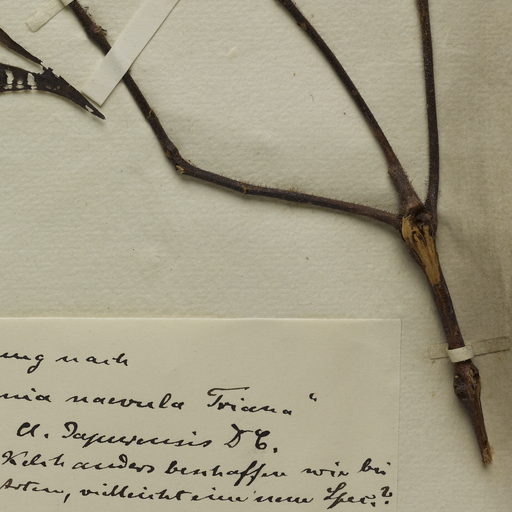 ung nach
nia naevula Triana"
A. Japurensis DC.
Kelch anders beschaffen wie bei
Arten, vielleicht eine neue Spec.?